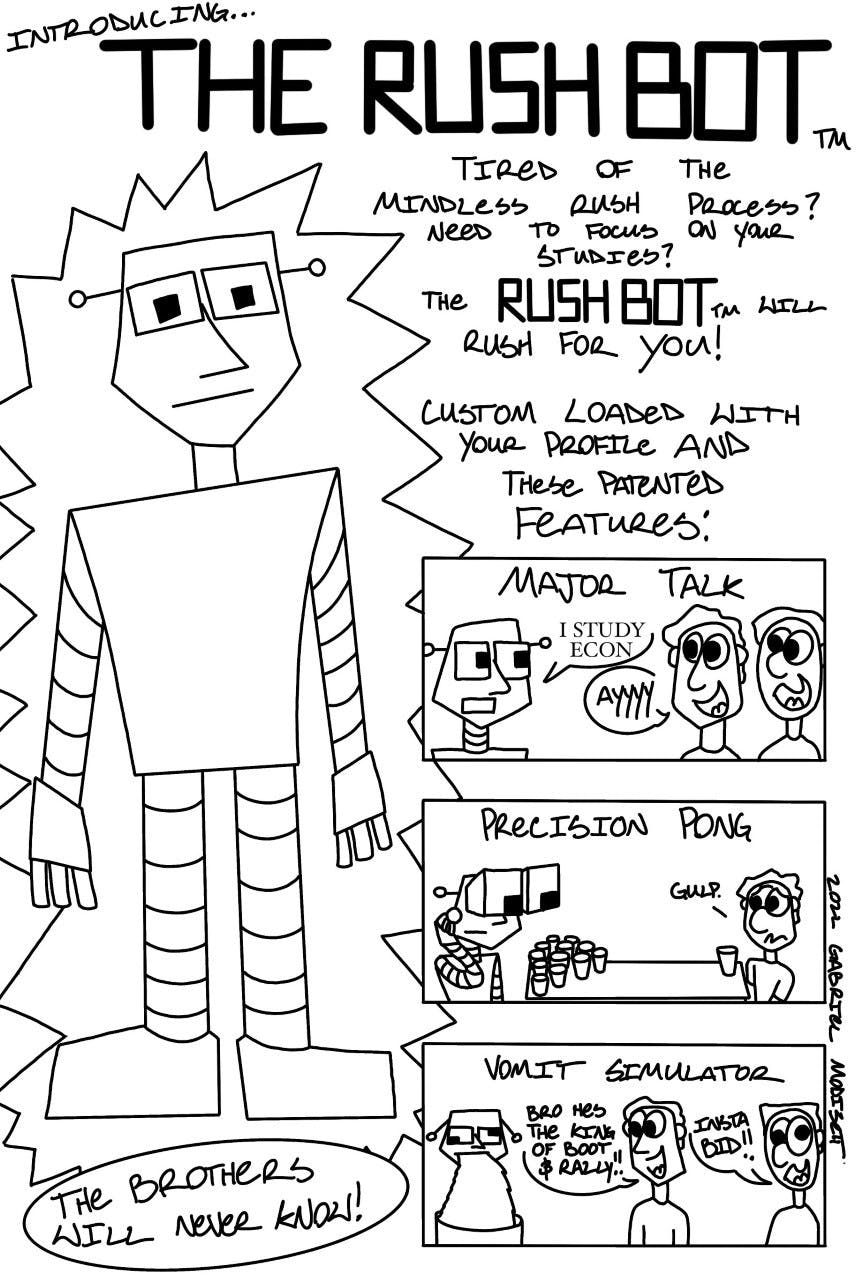 INTRODUCING...
THE RUSH BOT
TM
TIRED OF THE
MINDLESS RUSH PROCESS?
NEED TO FOCUS ON YOUR
STUDIES?
THE RUSH BOT TM WILL
RUSH FOR YOU!
CUSTOM LOADED WITH
YOUR PROFILE AND
THESE PATENTED
FEATURES:
MAJOR TALK
I STUDY
ECON
AYYYY
PRECISION PONG
GULP.
VOMIT SIMULATOR
BRO HES
THE KING
OF BOOT
& RALLY!!
INSTA
BID!!
THE BROTHERS
WILL NEVER KNOW!
2022 GABRIEL MODISETT